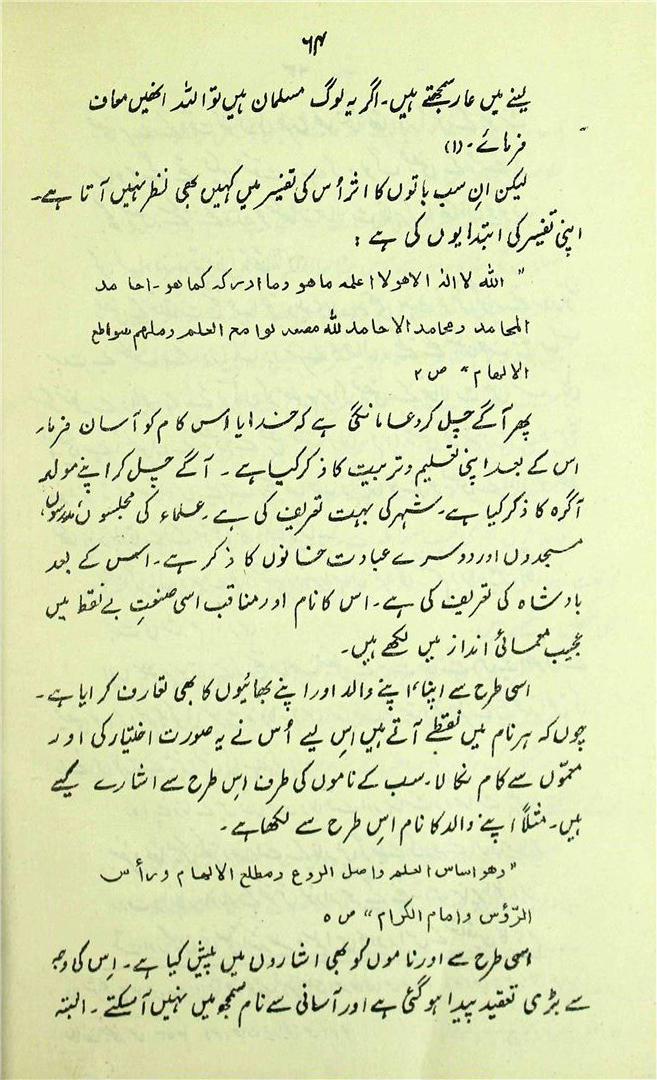 ۶۴
لینے میں عار سمجھتے ہیں۔ اگر یہ لوگ مسلمان ہیں تو اللہ انھیں معاف
فرمائے۔ (۱)
لیکن ان سب باتوں کا اثر اُس کی تفسیر میں کہیں بھی نظر نہیں آتا ہے۔
اپنی تفسیر کی ابتدا یوں کی ہے :
" اللہ لا الہ الا ھو لا اعلمہ ما ھو وما ادرکہ کما ھو۔ احامد
المحامد ومحامد الاحامد للہ مصعد لوامع العلم وملہم سواطع
الالھام " ص ۲
پھر آگے چل کر دعا مانگی ہے کہ خدایا اس کام کو آسان فرما۔
اس کے بعد اپنی تعلیم و تربیت کا ذکر کیا ہے۔ آگے چل کر اپنے مولد
آگرہ کا ذکر کیا ہے۔ شہر کی بہت تعریف کی ہے۔ علماء کی مجلسوں، مدرسوں،
مسجدوں اور دوسرے عبادت خانوں کا ذکر ہے۔ اس کے بعد
بادشاہ کی تعریف کی ہے۔ اس کا نام اور مناقب اسی صنعتِ بے نقط میں
عجیب معمائی انداز میں لکھے ہیں۔
اسی طرح سے اپنا، اپنے والد اور اپنے بھائیوں کا بھی تعارف کرایا ہے۔
چوں کہ ہر نام میں نقطے آتے ہیں اس لیے اُس نے یہ صورت اختیار کی اور
معموں سے کام نکالا۔ سب کے ناموں کی طرف اِس طرح سے اشارے کیے
ہیں۔ مثلاً اپنے والد کا نام اِس طرح سے لکھا ہے۔
" وھو اساس العلم واصل الروع ومطلع الالھام وراٴس
الرّؤس وامام الکرام " ص ۵
اسی طرح سے اور ناموں کو بھی اشاروں میں پیش کیا ہے۔ اِس کی وجہ
سے بڑی تعقید پیدا ہو گئی ہے اور آسانی سے نام سمجھ میں نہیں آ سکتے۔ البتہ